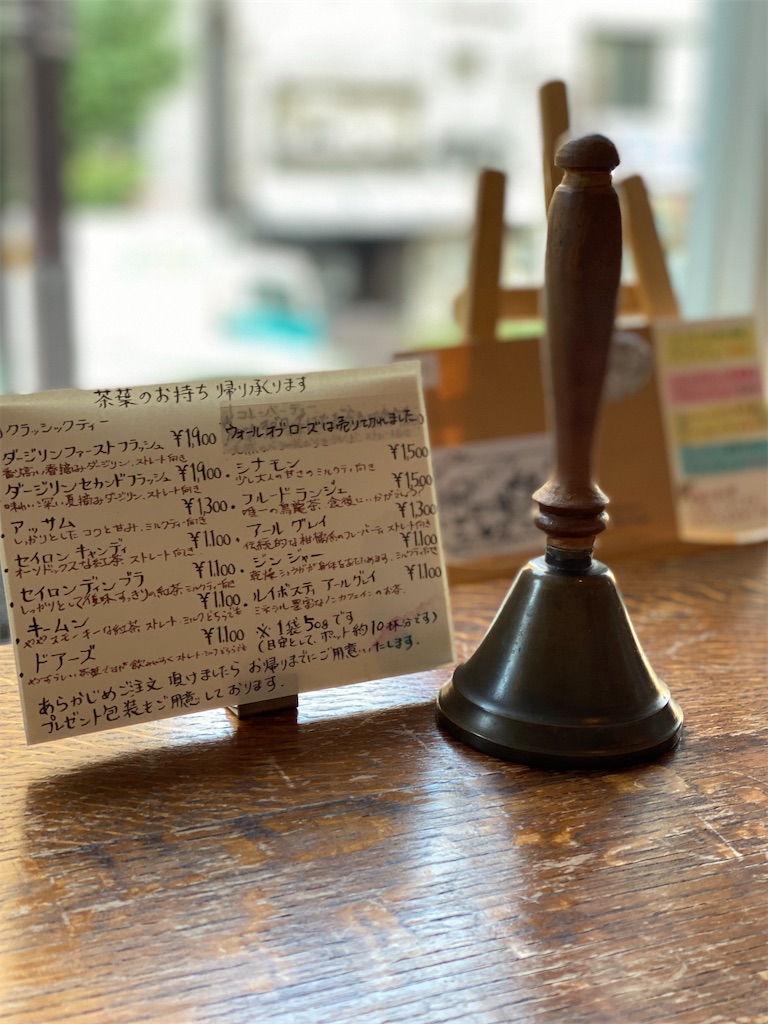 茶葉のお持ち帰り承ります
クラッシックティー
・ダージリンファーストフラッシュ ¥1,900
香り高い春摘みダージリン、ストレート向き
・ダージリンセカンドフラッシュ ¥1,900
味わい深い夏摘みダージリン、ストレート向き
・アッサム ¥1,300
しっかりとしたコクと甘み、ミルクティ向き
・セイロン キャンディ ¥1,100
オーソドックスな紅茶、ストレート向き
・セイロンディンブラ ¥1,100
しっかりとして後味すっきりの紅茶、ミルクティ向き
・キームン ¥1,100
ややスモーキーな紅茶、ストレート、ミルクどちらでも
・ドアーズ ¥1,100
ウォールオブローズは売り切れました
・シナモン ¥1,500
少し大人の甘さのミルクティ向き
・フルードランジェ ¥1,500
唯一の烏龍茶、食後にいかがでしょう
・アールグレイ ¥1,300
伝統的な柑橘系のフレーバーティ、ストレート向き
・ジンジャー ¥1,100
ミルクティ向き
・ルイボスティ アールグレイ ¥1,100
ミネラル豊富なノンカフェインのお茶、
※1袋50gです
(目安として、ポット約10杯分です)
あらかじめご注文頂けましたらお帰りまでにご用意いたします。
プレゼント包装もご用意しております。